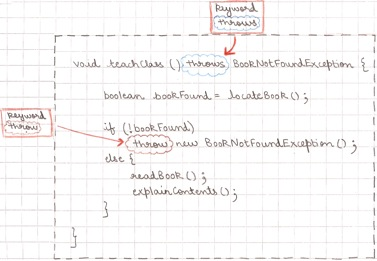 keyword
throws
void teachClass () throws BookNotFoundException {
boolean bookFound = locateBook();
if (!bookFound)
keyword
throw
throw new BookNotFoundException ();
else {
readBook();
explainContents();
}
}